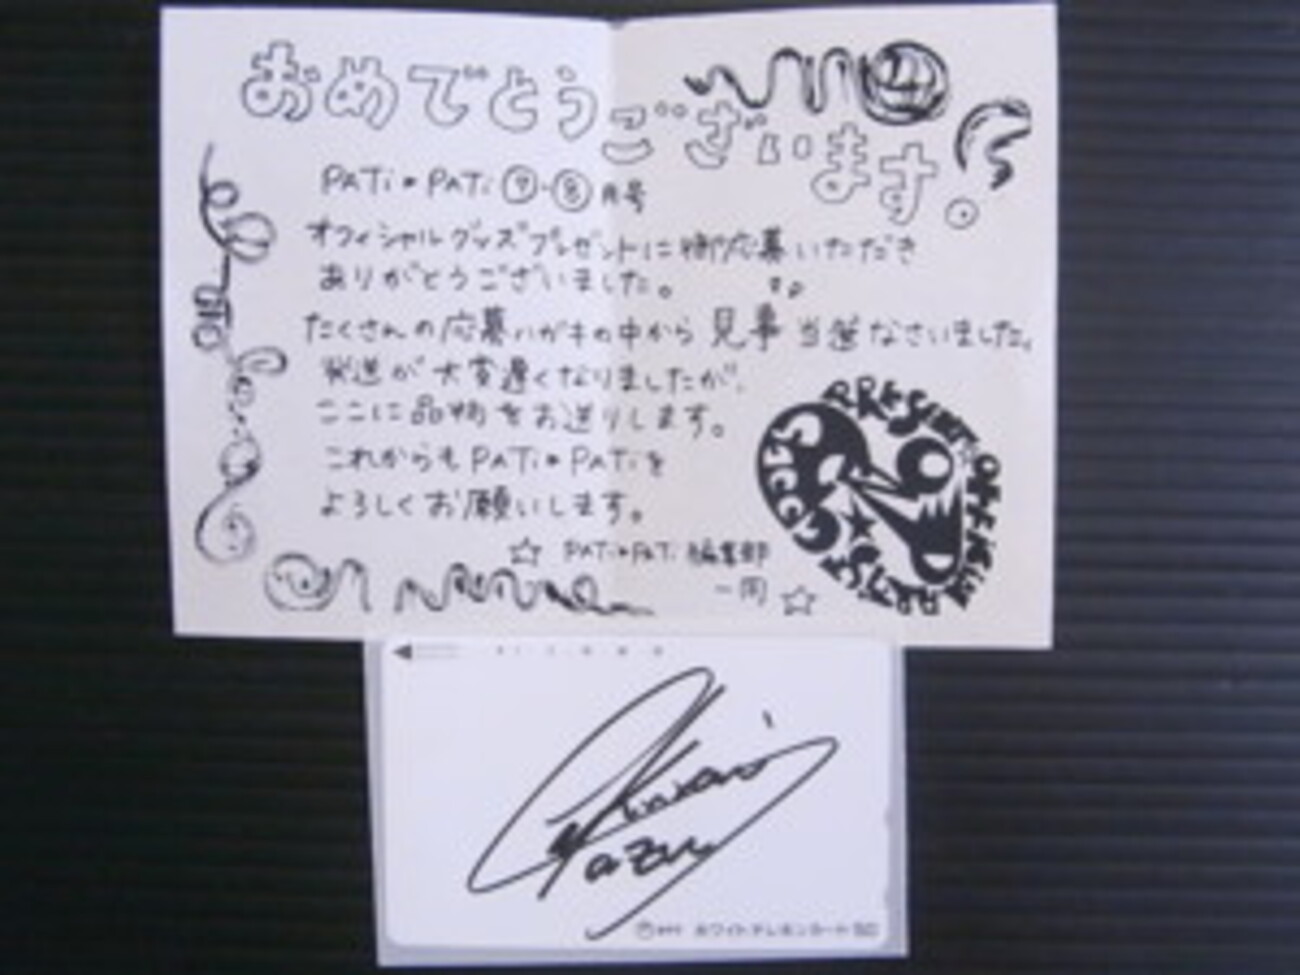 おめでとう
ございます!
PATi★PATi ⑦・⑧月号
オフィシャルグッズプレゼントに御応募いただき
ありがとうございました。
たくさんの応募ハガキの中から 見事 当選なさいました。
発送が大変遅くなりましたが、
ここに品物をお送りします。
これからもPATi★PATiを
よろしくお願いします。
☆ PATi★PATi 編集部
一同 ☆
PRESENT OFFICIAL
GOODS
azu
ホワイトテレホンカード 50